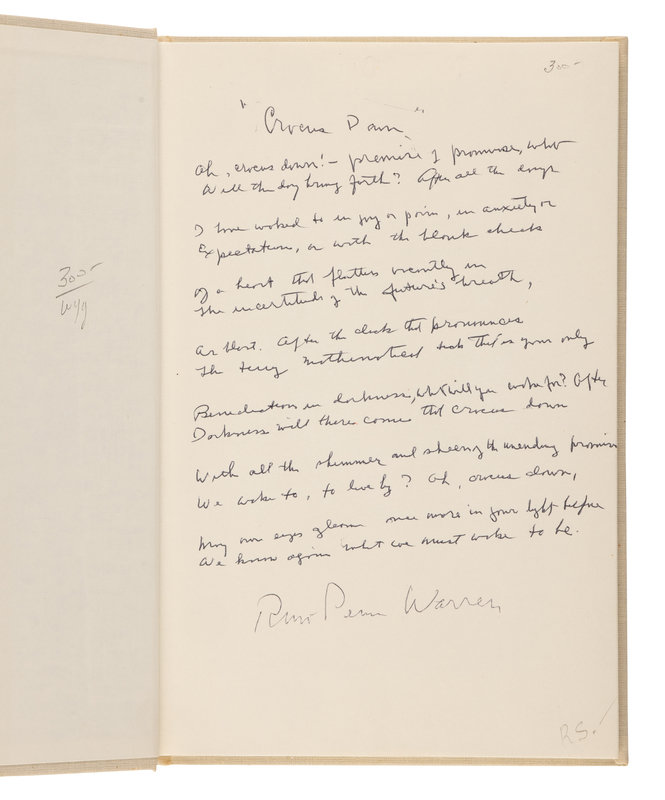 300-
"Crocus Dawn"
Oh, crocus dawn! — premise of promise, what
Will the day bring forth? After all the days
I have waked to in joy or pain, in anxiety or
Expectation, or with the blank check
Of a heart that flutters vacantly in
The incertitude of the future's breath,
Or blast. After the clock that pronounces
The tiny mathematical tick that is your only
Benediction in darkness, what will you wake for? After
Darkness will there come that crocus dawn
With all the shimmer and sheen of the unending promise
We wake to, to live by? Oh, crocus dawn,
May our eyes gleam once more in your light before
We know again what we must wake to be.
Robert Penn Warren
300-
R.S.